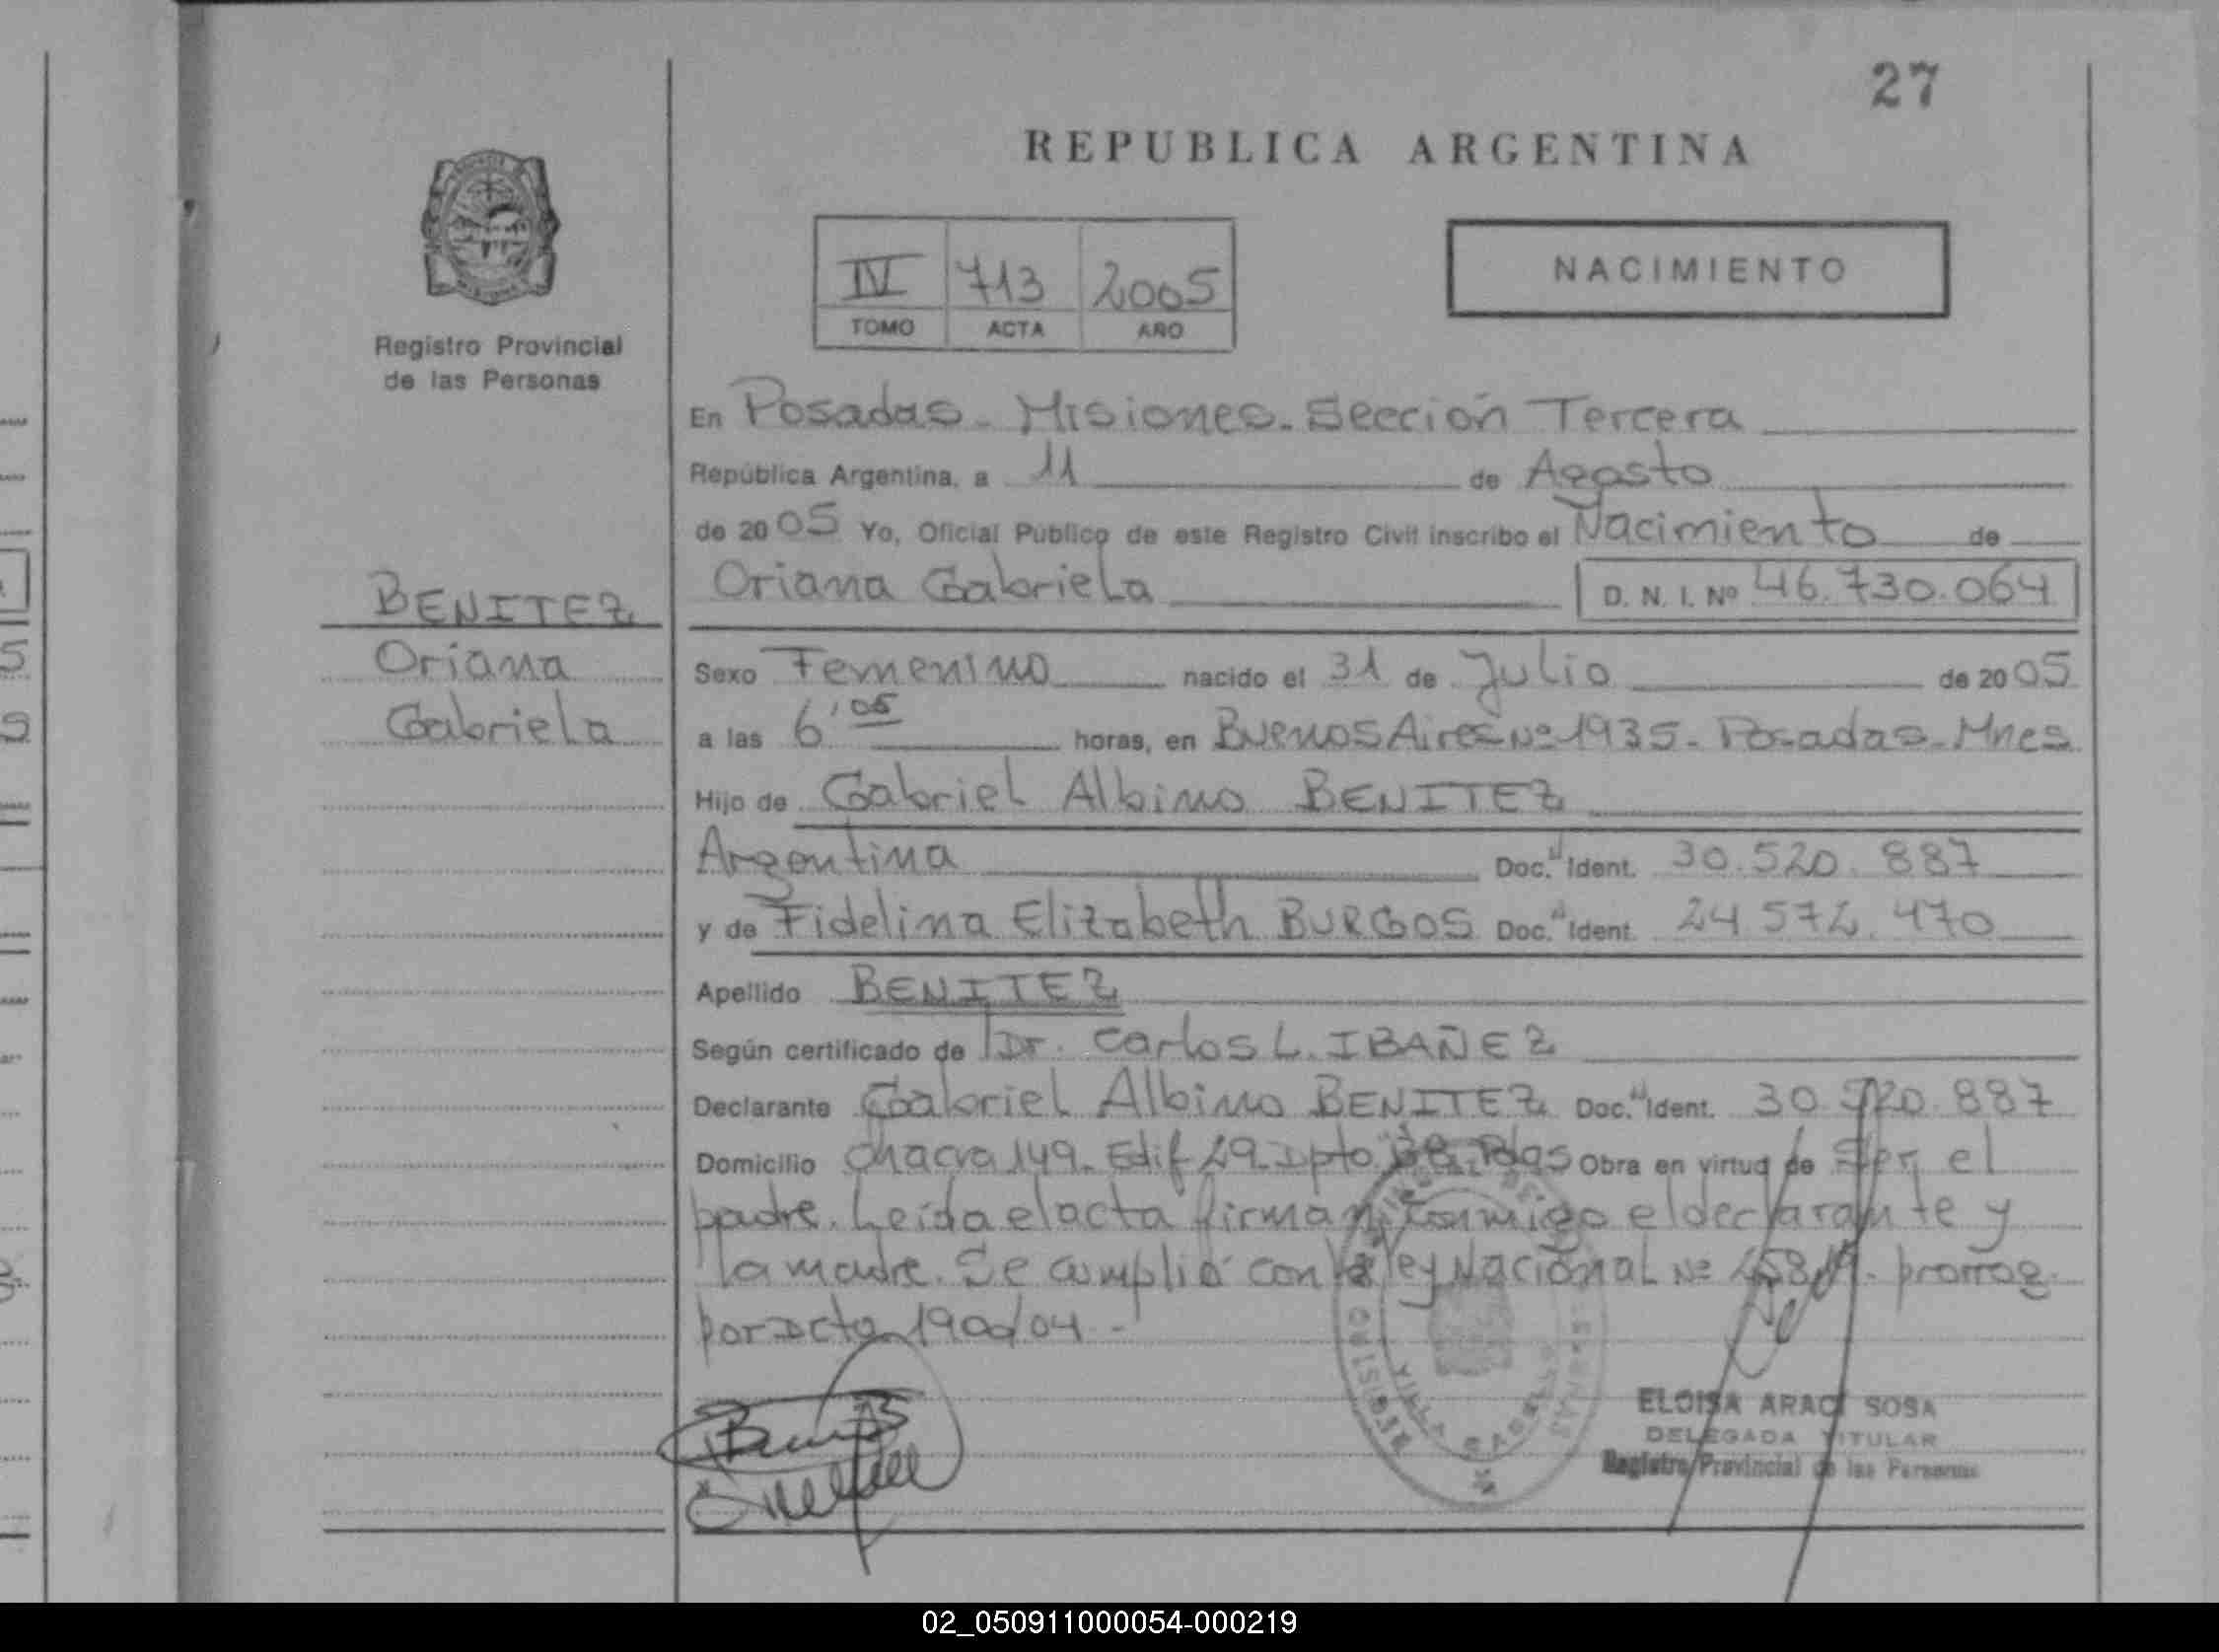 27
REPUBLICA ARGENTINA
IV 713 2005
TOMO ACTA AÑO
NACIMIENTO
Registro Provincial
de las Personas
BENITEZ
Oriana
Gabriela
En Posadas - Misiones - Sección Tercera
República Argentina, a 11 de Agosto
de 2005 Yo, Oficial Público de este Registro Civil inscribo el Nacimiento de
Oriana Gabriela D. N. I. Nº 46.730.064
Sexo Femenino nacido el 31 de Julio de 2005
a las 6,05 horas, en Buenos Aires Nº 1935 - Posadas - Mnes
Hijo de Gabriel Albino BENITEZ
Argentina Doc. Ident. 30.520.887
y de Fidelina Elizabeth BURGOS Doc. Ident. 24.572.470
Apellido BENITEZ
Según certificado de Dr. Carlos L. IBAÑEZ
Declarante Gabriel Albino BENITEZ Doc. Ident. 30.520.887
Domicilio Chacra 149 - Edif 29 Dpto Pdas Obra en virtud de Ser el
padre. Leída el acta firman conmigo el declarante y
la madre. Se cumplió con la ley Nacional Nº prorrog.
por Dcto 1900/04 -
REGISTRO
VILLA CABELLO
ELOISA ARACI SOSA
DELEGADA TITULAR
Registro Provincial de las Personas
02_050911000054-000219